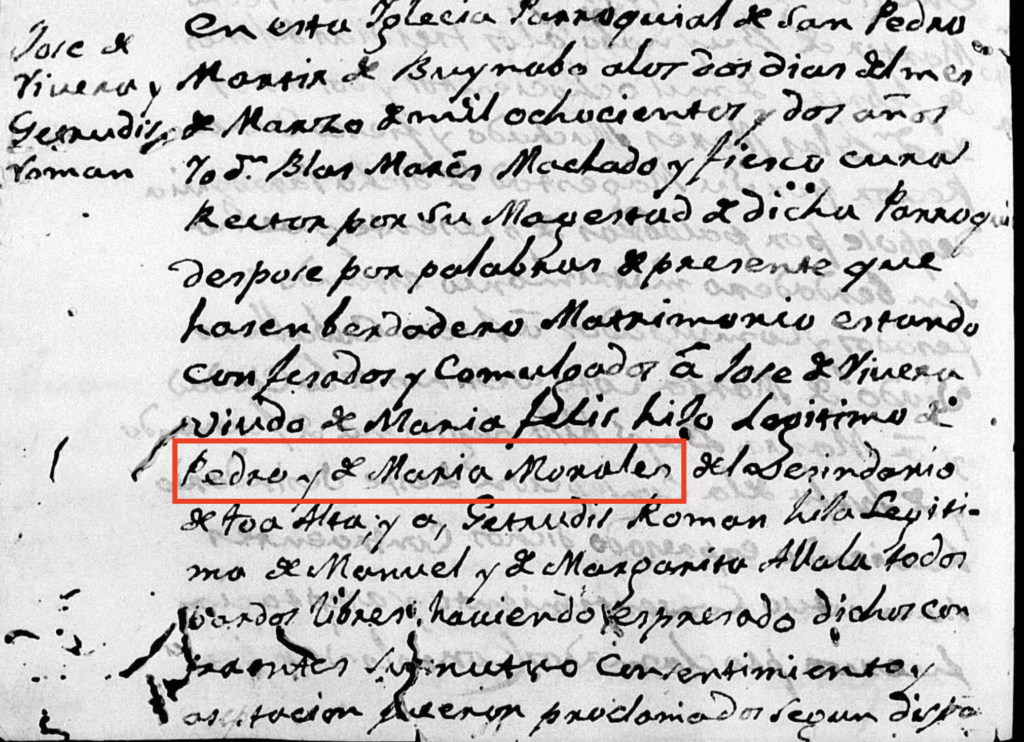 Jose de
Vivera y
Getrudis
Roman
en esta Iglecia Parroquial de San Pedro
Martir de Buynabo a los dos dias del mes
de Marzo de mil ochocientos y dos años
Yo dn Blas Marés Machado y fiesco cura
Rector por Su Magestad de dicha Parroqui
despose por palabras de presente que
hasen berdadero Matrimonio estando
confesados y Comulgados â Jose de Vivera
viudo de Maria felis hilo Legitimo de
Pedro y de Maria Morales de la besindario
de toa Alta, y a, Getrudis Roman hila Legiti-
ma de Manuel y de Margarita Allala todos
pardos libres, haviendo espresado dichos con
traentes su mutuo Consentimiento y
aseptacion fueron proclamados segun dispo